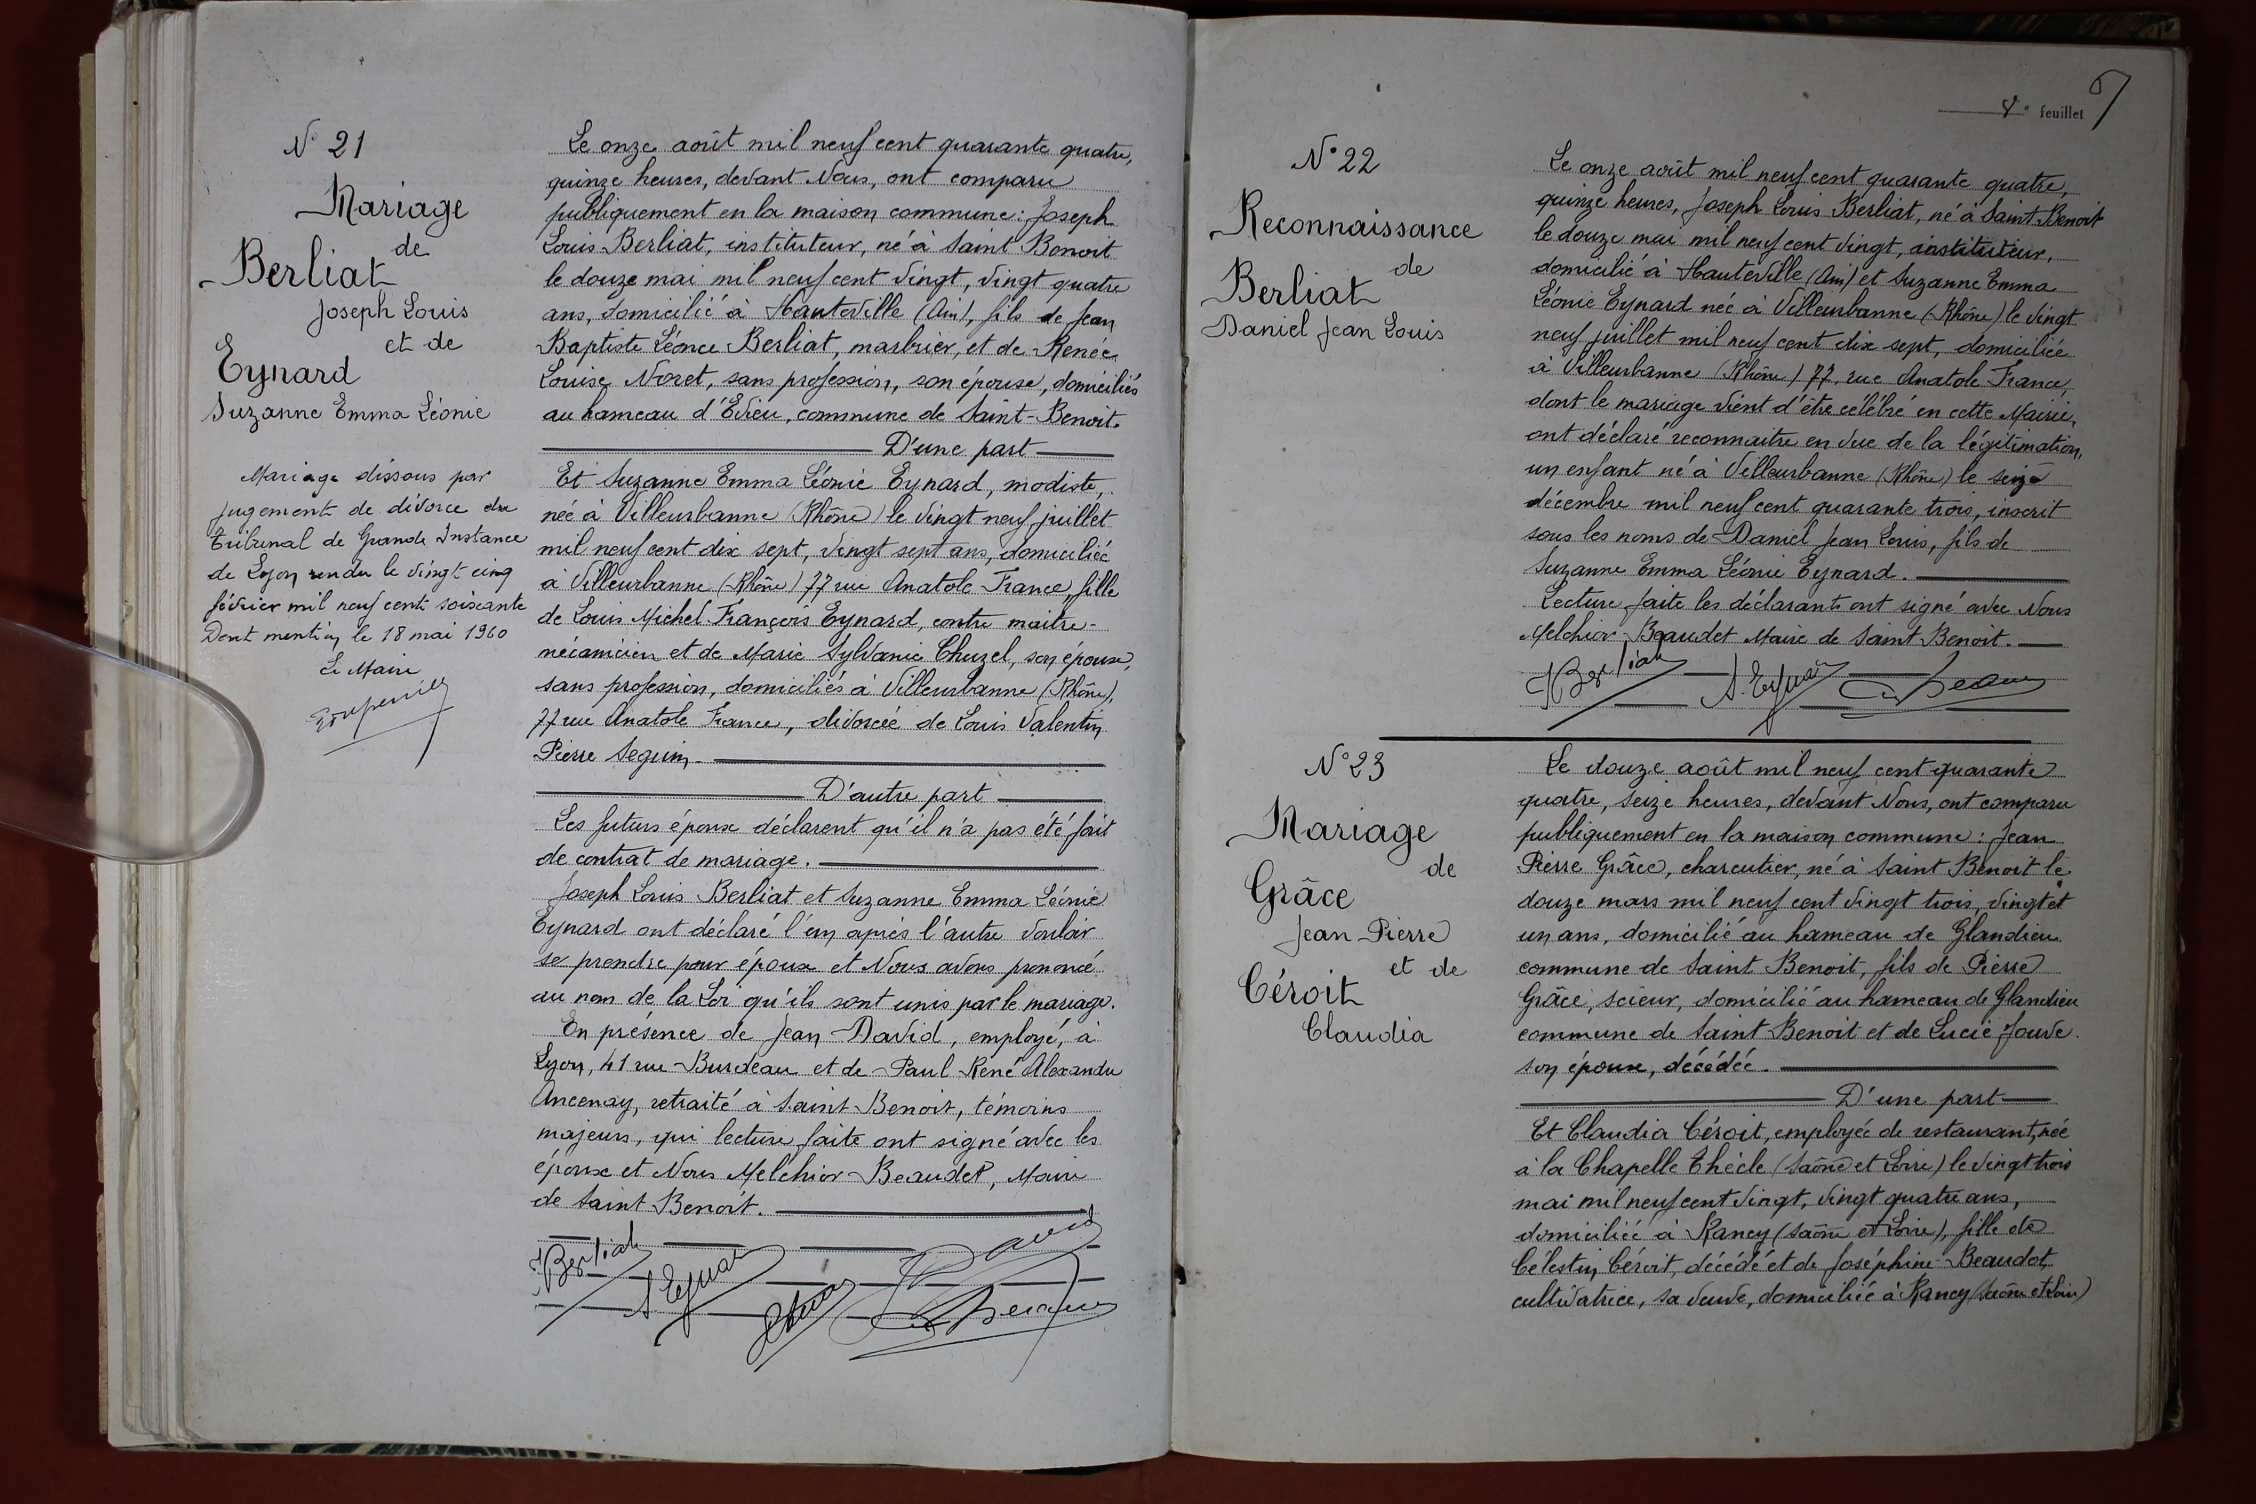 N° 21
Mariage
de
Berliat
Joseph Louis
et de
Eynard
Suzanne Emma Léonie
Mariage dissous par
jugement de divorce du
tribunal de Grande Instance
de Lyon rendu le vingt cinq
février mil neuf cent soixante
Dont mention le 18 mai 1960
Le Maire
Le onze août mil neuf cent quarante quatre,
quinze heures, devant Nous, ont comparu
publiquement en la maison commune : Joseph
Louis Berliat, instituteur, né à Saint Benoit
le douze mai mil neuf cent vingt, vingt quatre
ans, domicilié à Hauteville (Ain), fils de Jean
Baptiste Léonce Berliat, marbrier, et de Renée
Louise Noret, sans profession, son épouse, domiciliés
au hameau d'Evieu, commune de Saint-Benoit.
D'une part
Et Suzanne Emma Léonie Eynard, modiste,
née à Villeurbanne (Rhône) le vingt neuf juillet
mil neuf cent dix sept, vingt sept ans, domiciliée
à Villeurbanne (Rhône) 77 rue Anatole France, fille
de Louis Michel François Eynard, contre maitre-
mécanicien et de Marie Sylvanie Chuzel, son épouse,
sans profession, domiciliés à Villeurbanne (Rhône),
77 rue Anatole France, divorcée de Louis Valentin
Pierre Seguin.
D'autre part
Les futurs époux déclarent qu'il n'a pas été fait
de contrat de mariage.
Joseph Louis Berliat et Suzanne Emma Léonie
Eynard ont déclaré l'un après l'autre vouloir
se prendre pour époux et Nous avons prononcé
au nom de la Loi qu'ils sont unis par le mariage.
En présence de Jean David, employé, à
Lyon, 41 rue Burdeau et de Paul René Alexandre
Ancenay, retraité à Saint-Benoit, témoins
majeurs, qui lecture faite ont signé avec les
époux et Nous Melchior Beaudet, Maire
de Saint Benoit.
Berliat
S. Eynard
David
8e feuillet
N° 22
Reconnaissance
de
Berliat
Daniel Jean Louis
Le onze août mil neuf cent quarante quatre,
quinze heures, Joseph Louis Berliat, né à Saint Benoit
le douze mai mil neuf cent vingt, instituteur,
domicilié à Hauteville (Ain) et Suzanne Emma
Léonie Eynard née à Villeurbanne (Rhône) le vingt
neuf juillet mil neuf cent dix sept, domiciliée
à Villeurbanne (Rhône) 77, rue Anatole France,
dont le mariage vient d'être célébré en cette Mairie,
ont déclaré reconnaitre en vue de la légitimation,
un enfant né à Villeurbanne (Rhône) le seize
décembre mil neuf cent quarante trois, inscrit
sous les noms de Daniel Jean Louis, fils de
Suzanne Emma Léonie Eynard.
Lecture faite les déclarants ont signé avec Nous
Melchior Beaudet Maire de Saint Benoit.
Berliat
S. Eynard
N° 23
Mariage
de
Grâce
Jean Pierre
et de
Céroit
Claudia
Le douze août mil neuf cent quarante
quatre, seize heures, devant Nous, ont comparu
publiquement en la maison commune : Jean
Pierre Grâce, charcutier, né à Saint Benoit le
douze mars mil neuf cent vingt trois, vingt et
un ans, domicilié au hameau de Glandieu
commune de Saint Benoit, fils de Pierre
Grâce, scieur, domicilié au hameau de Glandieu
commune de Saint Benoit et de Lucie Jouve
son épouse, décédée.
D'une part
Et Claudia Céroit, employée de restaurant, née
à la Chapelle Thècle (Saône et Loire) le vingt trois
mai mil neuf cent vingt, vingt quatre ans,
domiciliée à Rancy (Saône et Loire), fille de
Célestin Céroit, décédé et de Joséphine Beaudot,
cultivatrice, sa veuve, domiciliée à Rancy (Saône et Loire)